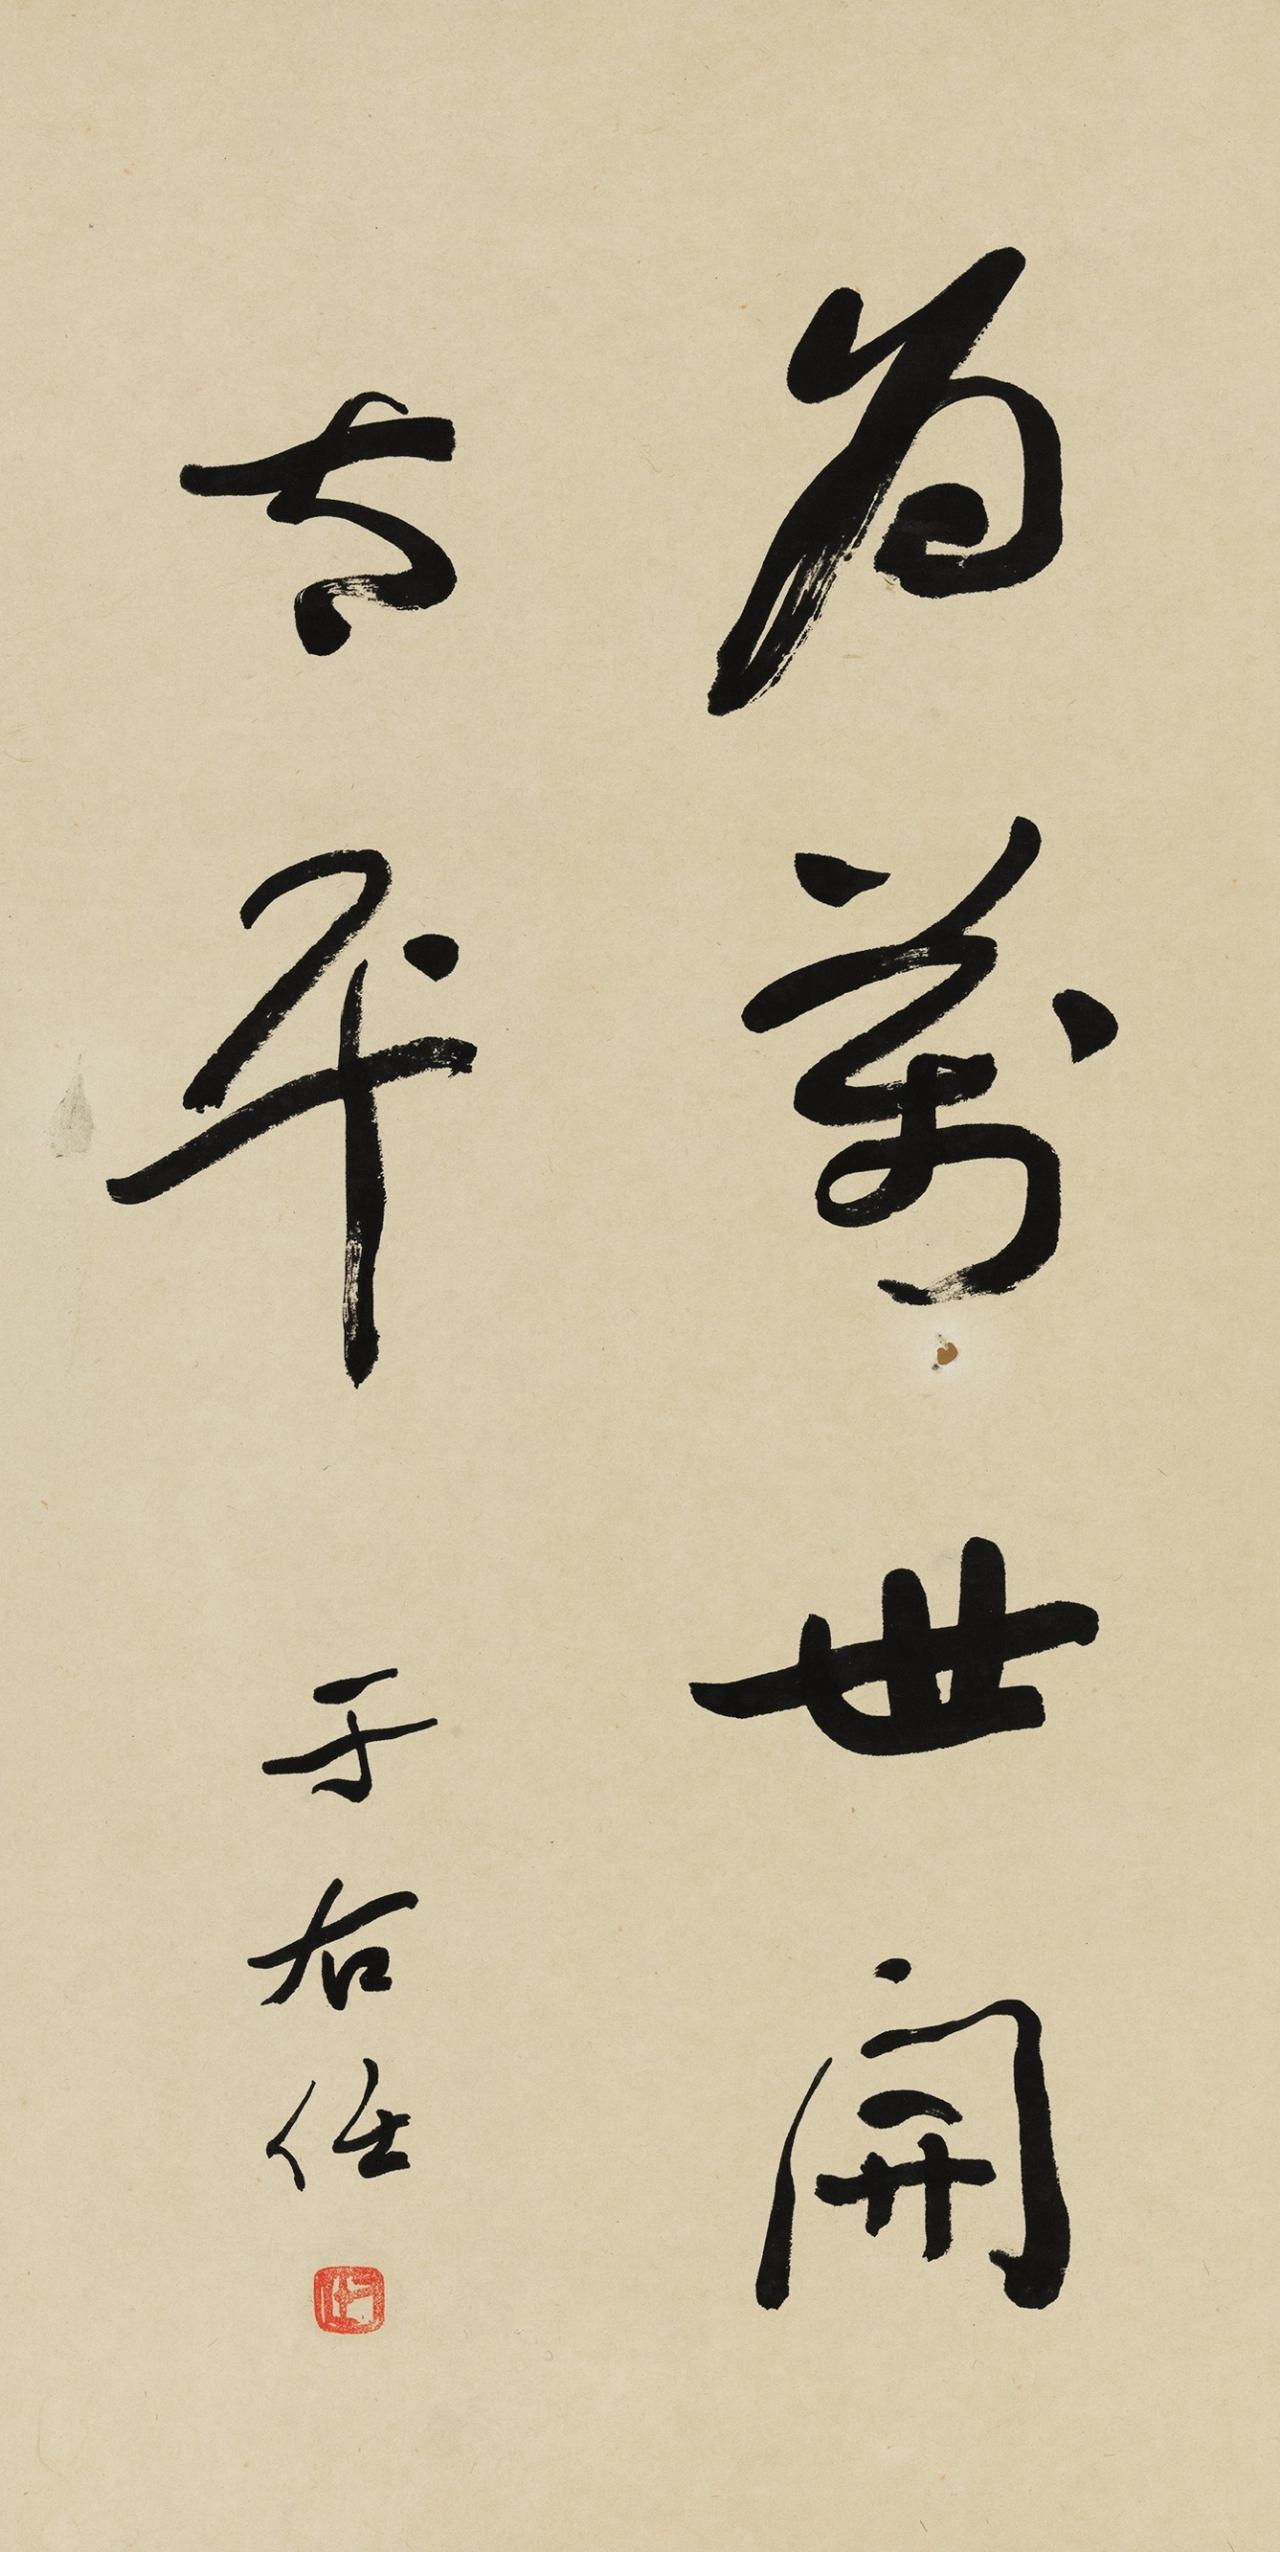 為萬世開
太平
于右任